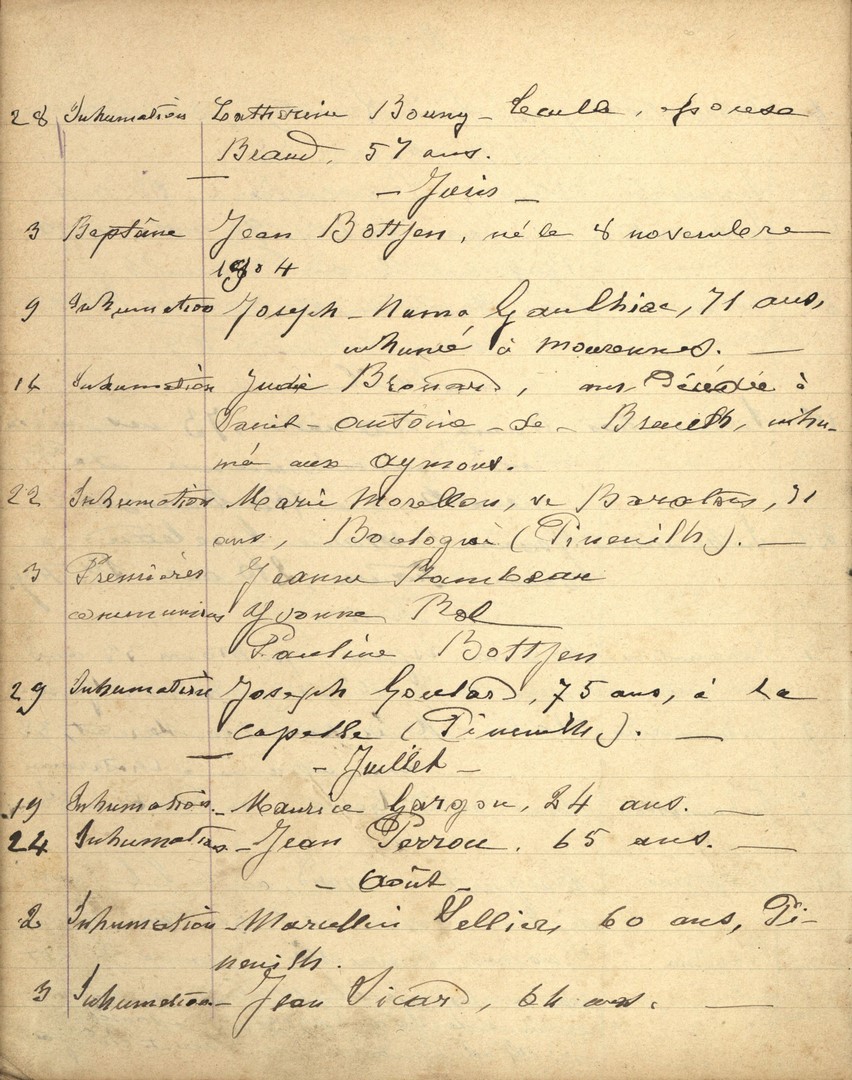 28 Inhumation Catherine Bouny - épouse
Beaud, 57 ans.
- Juin -
3 Baptême Jean Bottjen, né le 8 novembre
1904
9 Inhumation Joseph - Numa Gaulhiac, 71 ans,
inhumé à Mourennes. -
14 Inhumation Brouard, ans Décédée à
Saint - Antoine - de - Breuilh, inhu-
mé aux Aymons.
22 Inhumation Marie Morellon, 71
ans, (Pineuilh). -
3 Premières Jeanne Rambeau
communions Yvonne Rol
Pauline Bottjen
29 Inhumation Joseph Goulard, 75 ans, à La
capelle (Pineuilh). -
- Juillet -
19 Inhumation - Maurice Gargou, 24 ans. -
24 Inhumation - Jean Perrou. 65 ans. -
- Août -
2 Inhumation - Marcellin Tellier, 60 ans, Pi-
neuilh.
3 Inhumation - Jean Sicard, 64 ans. -